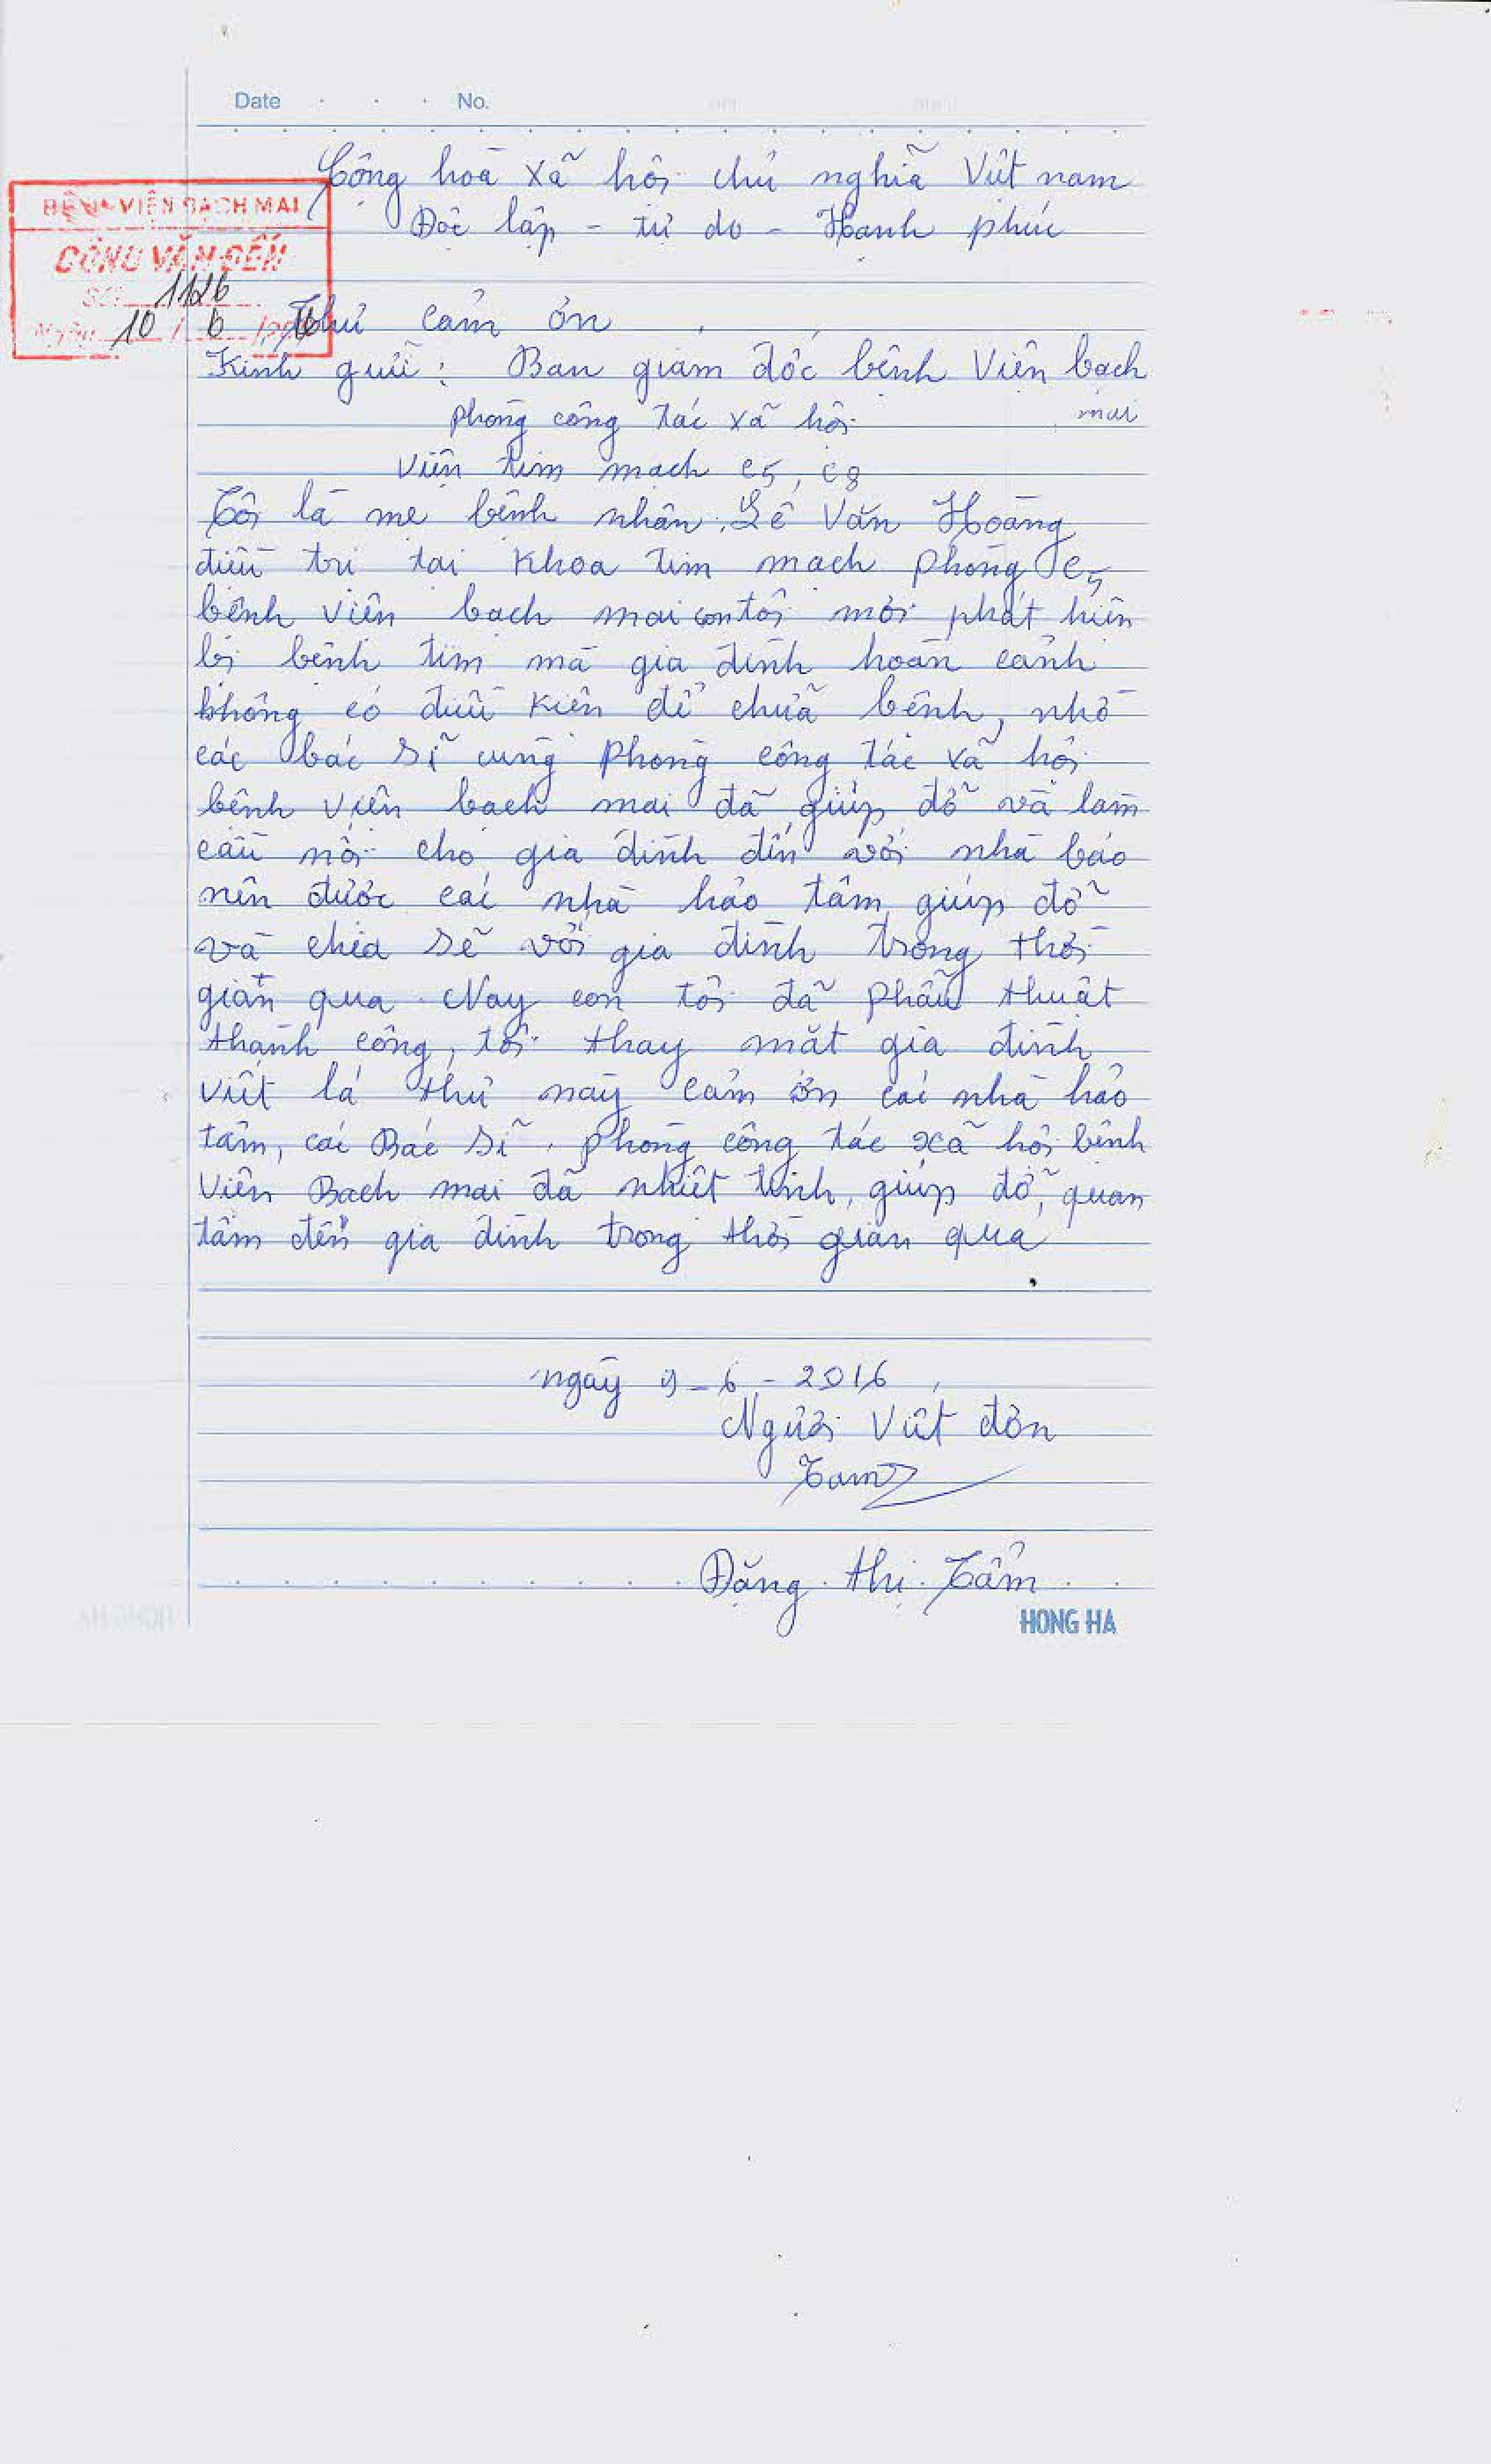 Date No.
Cộng hoà xã hội chủ nghĩa Việt nam
Độc lập - tự do - Hạnh phúc
BỆNH VIỆN BẠCH MAI
CÔNG VĂN ĐẾN
Số: 1126
Ngày 10 / 6 /
Thư cảm ơn
Kính gửi : Ban giám đốc bệnh Viện bạch
mai
phòng công tác xã hội
Viện tim mạch c5, c8
Tôi là mẹ bệnh nhân, Lê Văn Hoàng
điều trị tại Khoa tim mạch phòng c5
bệnh viện bạch mai con tôi mới phát hiện
bị bệnh tim mà gia đình hoàn cảnh
không có điều kiện để chữa bệnh, nhờ
các bác sĩ cùng phòng công tác xã hội
bệnh viện bạch mai đã giúp đỡ và làm
cầu nối cho gia đình đến với nhà báo
nên được các nhà hảo tâm giúp đỡ
và chia sẽ với gia đình trong thời
gian qua. Nay con tôi đã phẫu thuật
thành công, tôi thay mặt gia đình
viết lá thư này cảm ơn các nhà hảo
tâm, các Bác sĩ, phòng công tác xã hội bệnh
Viện Bạch mai đã nhiệt tình, giúp đỡ, quan
tâm đến gia đình trong thời gian qua
ngày 9-6-2016
Người Viết đơn
Đặng thị Tâm
HONG HA